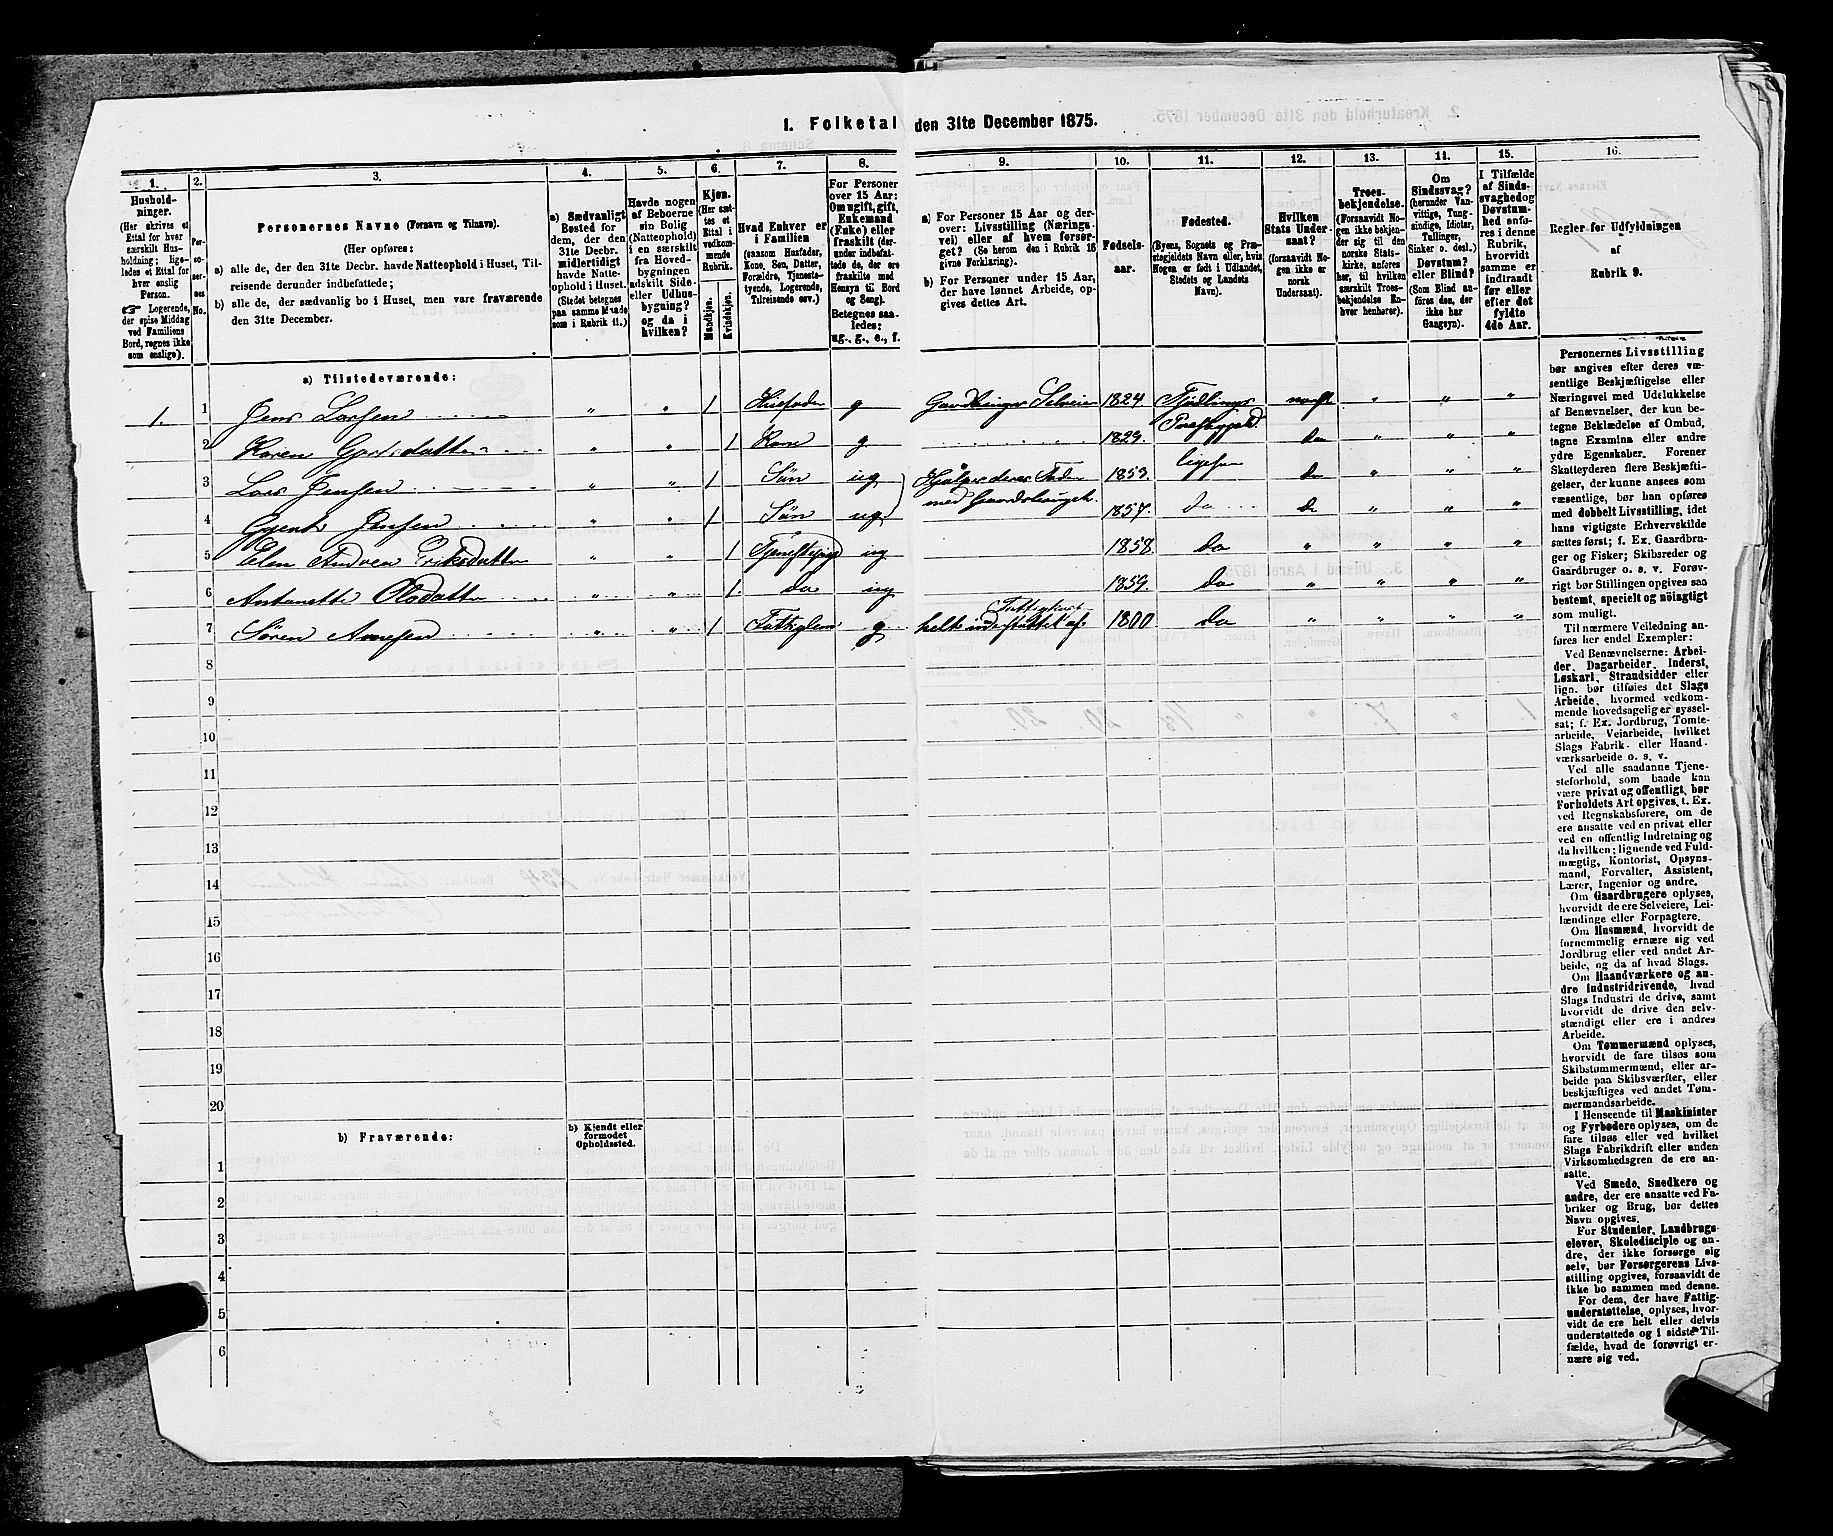 1. Folketal den 31te December 1875.
1. 2. 3. 4. 5. 6. 7. 8. 9. 10. 11. 12. 13. 14. 15. 16.
Hushold-
ninger.
(Her skrives et
Ettal for hver
særskilt Hus-
holdning; lige-
ledes et Ettal for
hver enslig
Person.
☞ Logerende,
der spise Middag
ved Familiens
Bord, regnes ikke
som enslige).
Per-
so-
ner-
nes
No.
Personernes Navne (Fornavn og Tilnavn).
(Her opføres:
a) alle de, der den 31te Decbr. havde Natteophold i Huset, Til-
reisende derunder indbefattede;
b) alle de, der sædvanlig bo i Huset, men vare fraværende
den 31te December.
a) Sædvanligt
Bosted for
dem, der den
31te Decbr.
midlertidigt
havde Natte-
ophold i Huset.
(Stedet betegnes
paa samme Maade
som i Rubrik 11.)
Havde nogen
af Beboerne
sin Bolig
(Natteophold)
i en særskilt
fra Hoved-
bygningen
adskilt Side-
eller Udhus-
bygning?
og da i
hvilken?
Kjøn.
(Her sæt-
tes et
Ettal i
vedkom-
mende
Rubrik.
Mandkjøn.
Kvindekjøn.
Hvad Enhver er
i Familien
(saasom Husfader,
Kone, Søn, Datter,
Forældre, Tjeneste-
tyende, Logerende,
Tilreisende osv.)
For Personer
over 15 Aar;
Om ugift, gift,
Enkemand
(Enke) eller
fraskilt (der-
under indbefat-
tede de, der ere
fraskilte med
Hensyn til Bord
og Seng).
Betegnes saa-
ledes;
ug., g., e., f.
a) For Personer 15 Aar og der-
over: Livsstilling (Nærings-
vei) eller af hvem forsør-
get? (Se herom den i Rubrik 16
givne Forklaring).
b) For Personer under 15 Aar,
der have lønnet Arbeide, op-
gives dettes Art.
Fødsels-
aar.
Fødested.
(Byens, Sognets og Præ-
stegjeldets Navn eller, hvis
Nogen er født i Udlandet,
Stedets og Landets
Navn).
Hvilken
Stats Under-
saat?
(forsaavidt No-
gen ikke er
norsk
Undersaat).
Troes-
bekjendelse.
(Forsaavidt No-
gen ikke bekjen-
der sig til den
norske Stats-
kirke, anføres
her, til hvilken
særskilt Troes-
bekjendelse En-
hver henhører).
Om
Sindssvag?
(herunder Van-
vittige, Tung-
sindige, Idioter,
Tullinger,
Sinker o. desl.)
Døvstum?
eller Blind?
(Som Blind an-
føres den, der
ikke har
Gangsyn).
I Tilfælde
af Sinds-
svaghed og
Døvstum-
hed anfø-
res i denne
Rubrik,
hvorvidt
samme er
indtraadt
før eller
efter det
fyldte
4de Aar.
Regler for Udfyldningen
af
Rubrik 9.
a) Tilstedeværende:
1. 1 Jens Larsen " " 1 Husfader g Gaardbruger Selveier 1824 Tjødlings Præstegjeld norsk " " "
2 Karen Gjertsdatter " " 1 Kone g 1829. ligesaa do " " "
3 Lars Jensen " " 1 Søn ug Hjælper deres Fader 1853. do " " "
med Gaardsbruget.
4 Gjert Jensen " " 1 Søn ug 1857. do do " " "
5 Elen Andrea Eriksdatter " " 1 Tjenestepige ug 1858. do " " " "
6 Antonette Olsdatter " " 1. do ug 1859. do " " " "
7 Søren Arnesen " " 1 Fattiglem g helt understøttet af Fattigkassen 1800 do " " " "
8
9
10
11
12
13
14
15
16
17
18
19
20
b) Fraværende:
b) Kjendt eller
formodet
Opholdssted.
1
2
3
4
5
6
Personernes Livsstilling
bør angives efter deres væ-
sentlige Beskjæftigelse eller
Næringsvei med Udelukkelse
af Benævnelser, der kun be-
tegne Beklædelse af Ombud,
tagne Examina eller andre
ydre Egenskaber. Forener
Skatteyderen flere Beskjæfti-
gelser, der kunne ansees som
væsentlige, bør han opføres
med dobbelt Livsstilling, idet
hans vigtigste Erhvervskilde
sættes først; f. Ex. Gaardbru-
ger og Fisker; Skibsreder og
Gaardbruger o. s. v. Forøv-
rigt bør Stillingen opgives saa
bestemt, specielt og nöiagtigt
som muligt.
Til nærmere Veiledning an-
føres her endel Exempler:
Ved Benævnelserne: Arbei-
der, Dagarbeider, Inderst,
Løskarl, Strandsidder eller
lign. bør tilføies det Slags
Arbeide, hvormed vedkom-
mende hovedsagelig er syssel-
sat; f. Ex. Jordbrug, Tomte-
arbeide, Veiarbeide, hvilket
Slags Fabrik- eller Haand-
værksarbeide o. s. v.
Ved alle saadanne Tjene-
steforhold, som baade kan
være privat og offentligt, bør
Forholdets Art opgives, t. Ex.
ved Regnskabsførere, om de
ere ansatte ved en privat eller
ved en offentlig Indretning og
da hvilken; lignende ved Fuld-
mægtig, Kontorist, Opsyns-
mand, Forvalter, Assistent,
Lærer, Ingeniør og andre.
Om Gaardbrugere oplyses,
hvorvidt de ere Selveiere, Lei-
lændinge eller Forpagtere.
Om Husmænd, hvorvidt de
fornemmelig ernære sig ved
Jordbrug eller ved andet Ar-
beide, og da af hvad Slags.
Om Haandværkere og an-
dre Industridrivende, hvad
Slags Industri de drive, samt
hvorvidt de drive den selv-
stændigt eller ere i andres
Arbeide.
Om Tømmermænd oplyses,
hvorvidt de fare tilsøs som
Skibstømmermænd, eller ar-
beide paa Skibsværfter, eller
beskjæftiges ved andet Tøm-
mermandsarbeide.
I Henseende til Maskinister
og Fyrbødere oplyses, om de
fare tilsøs eller ved hvilket
Slags Fabrikdrift eller anden
Virksomhedsgren de ere an-
satte.
Ved Smede, Snedkere og
andre, der ere ansatte ved Fa-
briker og Brug, bør dettes
Navn opgives.
For Studenter, Landbrugs-
elever, Skoledisciple og an-
dre, der ikke forsørge sig
selv, bør Forsørgerens Livs-
stilling opgives, forsaavidt de
ikke bo sammen med denne.
For dem, der have Fattig-
understøttelse, oplyses, hvor-
vidt de ere helt eller delvis
understøttede og i sidste Til-
fælde, hvad de forøvrigt er-
nære sig ved.